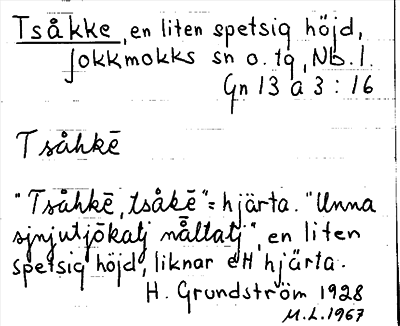 Tsåkke, en liten spetsig höjd,
Jokkmokks sn o. tg, Nb. l.
Gn 13 a 3 : 16
Tsåhkē
"Tsåhkē, tsåkē" = hjärta. "Unna
sjnjutjōkatj nåltatj", en liten
spetsig höjd, liknar ett hjärta.
H. Grundström 1928
M.L. 1967